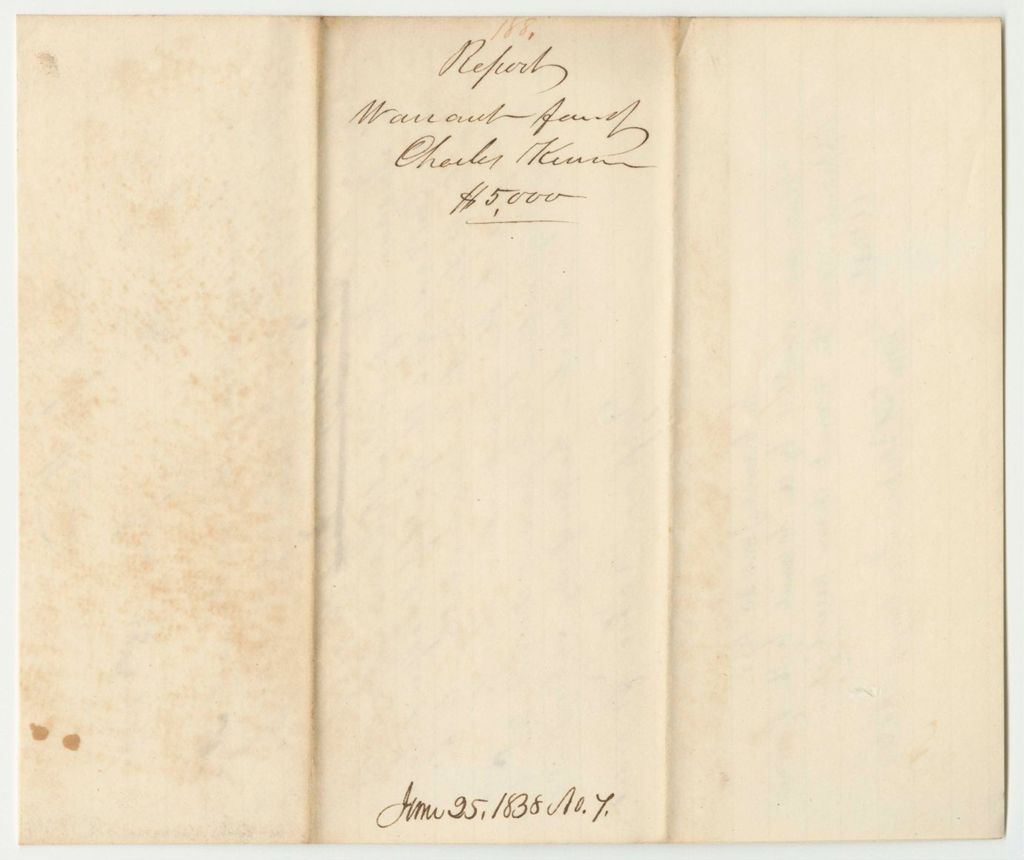 188.
Report
Warrant fav. of
Charles
$5,000
June 25. 1838 No. 7.